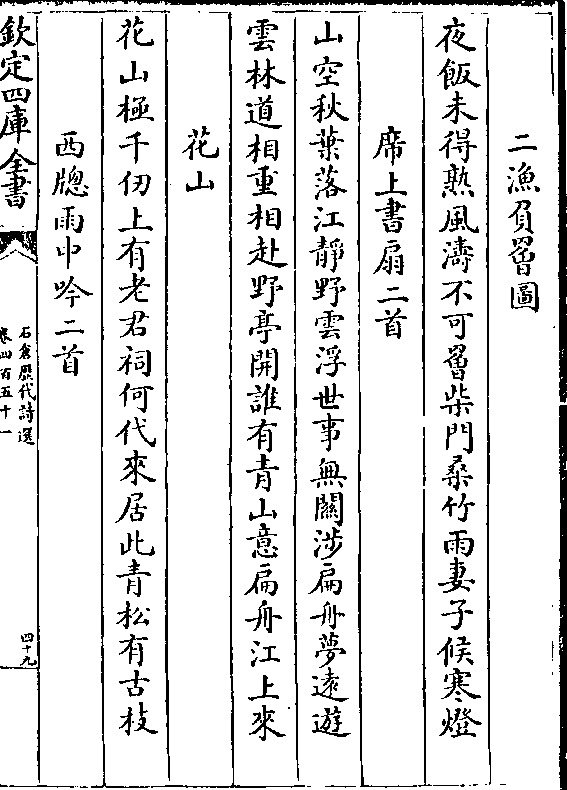 二漁負罾圖
夜飯未得熟風濤不可罾柴門桑竹雨妻子候寒燈
席上書扇二首
山空秋葉落江靜野雲浮世事無關涉扁舟夢遠遊
雲林道相重相赴野亭開誰有青山意扁舟江上來
花山
花山極千仞上有老君祠何代來居此青松有古枝
西牕雨中吟二首
欽定四庫全書
石倉歷代詩選
卷四百五十一
四十九